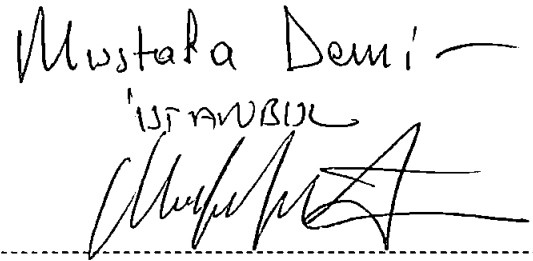 Mustafa Demi
İSTANBUL